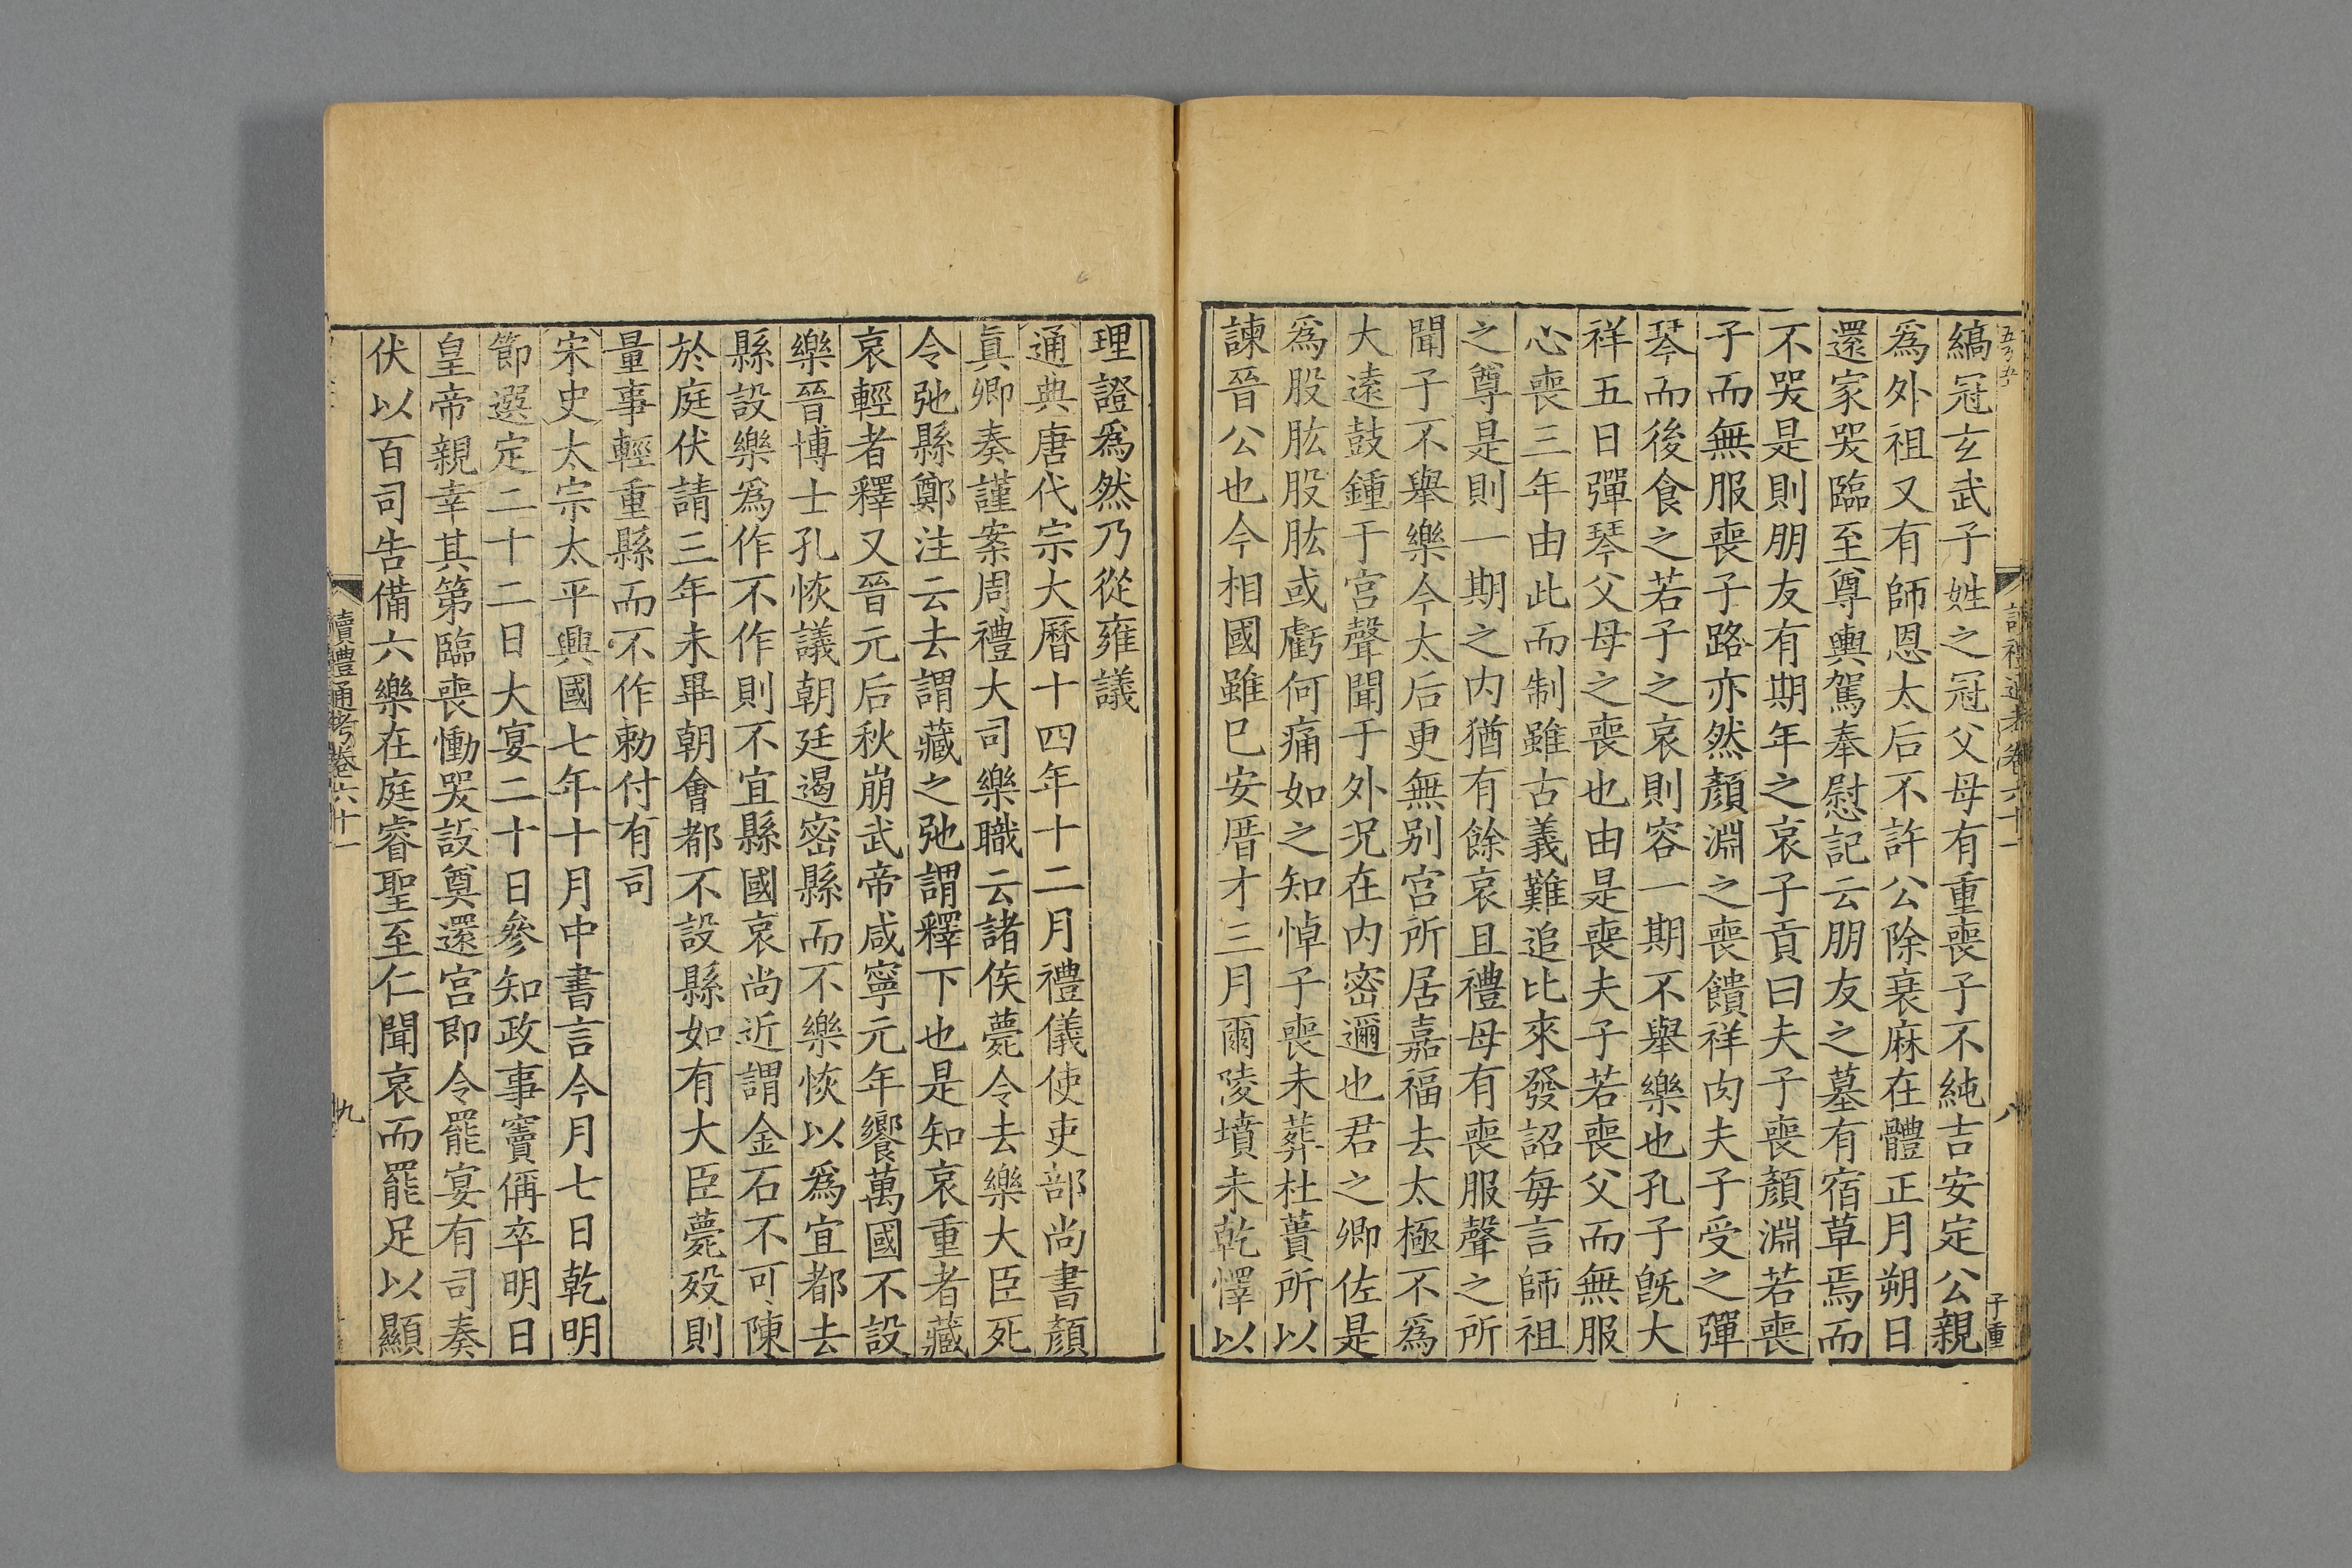 縞冠玄武子姓之冠父母有重喪子不純吉安定公親
爲外祖又有師恩太后不許公除衰麻在體正月朔日
還家哭臨至尊輿駕奉慰記云朋友之墓有宿草焉而
不哭是則朋友有期年之哀子貢曰夫子喪顏淵若喪
子而無服喪子路亦然顏淵之喪饋祥肉夫子受之彈
琴而後食之若子之哀則容一期不舉樂也孔子旣大
祥五日彈琴父母之喪也由是喪夫子若喪父而無服
心喪三年由此而制雖古義難追比來發詔每言師祖
之尊是則一期之内猶有餘哀且禮母有喪服聲之所
聞子不舉樂今太后更無别宫所居嘉福去太極不爲
大遠鼓鍾于宫聲聞于外況在内密邇也君之卿佐是
爲股肱股肱或虧何痛如之知悼子喪未葬杜蕢所以
諫晉公也今相國雖巳安厝才三月爾陵墳未乾懌以
理證爲然乃從雍議
通典唐代宗大曆十四年十二月禮儀使吏部尚書顏
眞卿奏謹案周禮大司樂職云諸侯薨令去樂大臣死
令弛縣鄭注云去謂藏之弛謂釋下也是知哀重者藏
哀輕者釋又晉元后秋崩武帝咸寧元年饗萬國不設
樂晉博士孔恢議朝廷遏密縣而不樂恢以爲宜都去
縣設樂爲作不作則不宜縣國哀尚近謂金石不可陳
於庭伏請三年未畢朝會都不設縣如有大臣薨歿則
量事輕重縣而不作勅付有司
宋史太宗太平興國七年十月中書言今月七日乾明
節選定二十二日大宴二十日參知政事竇偁卒明日
皇帝親幸其第臨喪慟哭設奠還宫即令罷宴有司奏
伏以百司告備六樂在庭睿聖至仁聞哀而罷足以顯
讀禮通考卷六十一
九